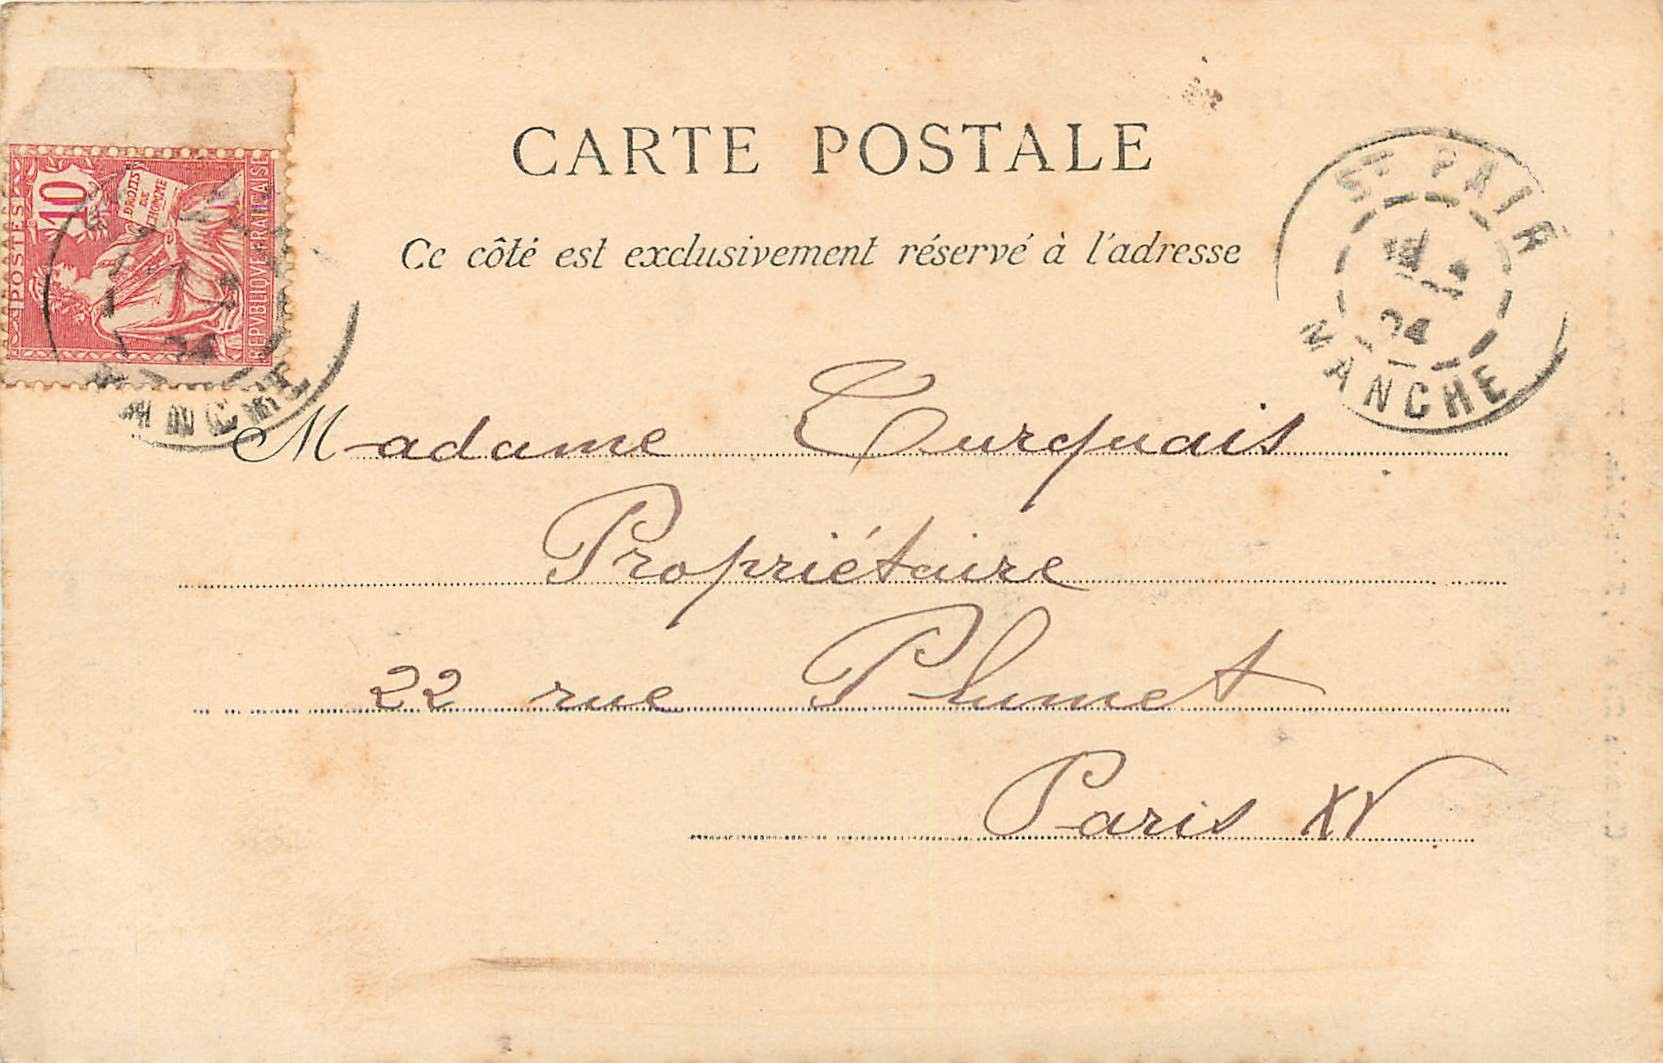 CARTE POSTALE
Ce côté est exclusivement réservé à l'adresse
POSTES
10
DROITS
DE
L'HOMME
REPVBLIQVE FRANÇAISE
MANCHE
St PAIR
04
MANCHE
Madame Turquais
Propriétaire
22 rue Plumet
Paris XV